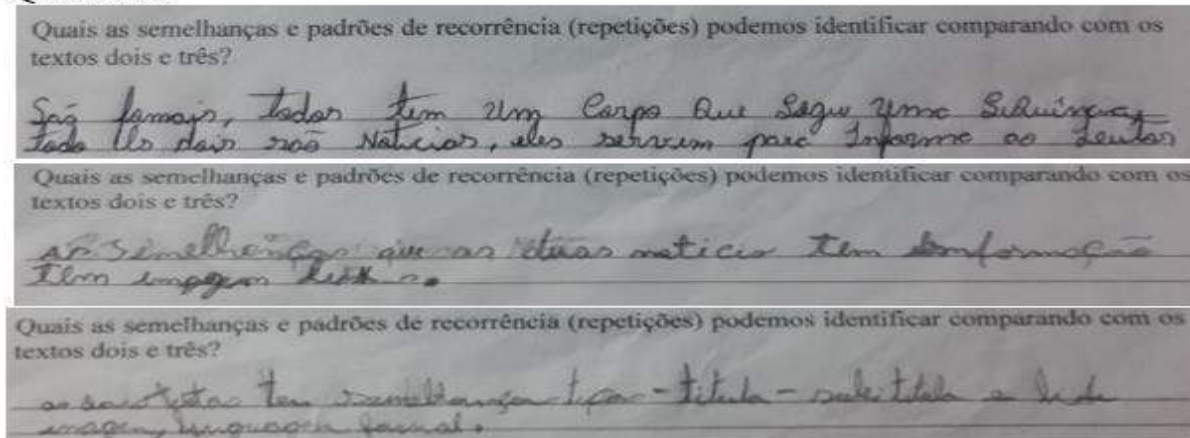 Quais as semelhanças e padrões de recorrência (repetições) podemos identificar comparando com os
textos dois e três?
São jornais, todos tem um Corpo Que Segue uma
os dois são Noticias, eles servem para Informa ao Leutor
Quais as semelhanças e padrões de recorrência (repetições) podemos identificar comparando com os
textos dois e três?
as Simelhenças que as duas noticia tem
tem
Quais as semelhanças e padrões de recorrência (repetições) podemos identificar comparando com os
textos dois e três?
tem semelhança - titulo - e lide
imagem, linguagem formal.